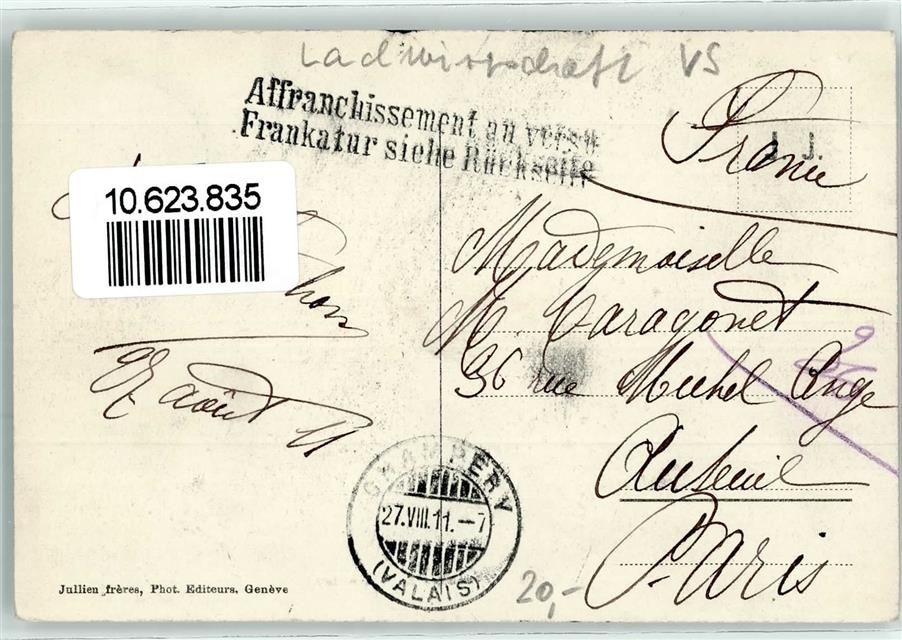 Ladwirtschaft VS
Affranchissement au verso
Frankatur siehe Rückseite
J. J.
France
10.623.835
Mademoiselle
M. Caragonet
36 rue Michel Ange
Auteuil
Paris
27 août 11
CHAMPÉRY
27.VIII.11.-7
(VALAIS)
20,-
Jullien frères, Phot. Editeurs, Genève